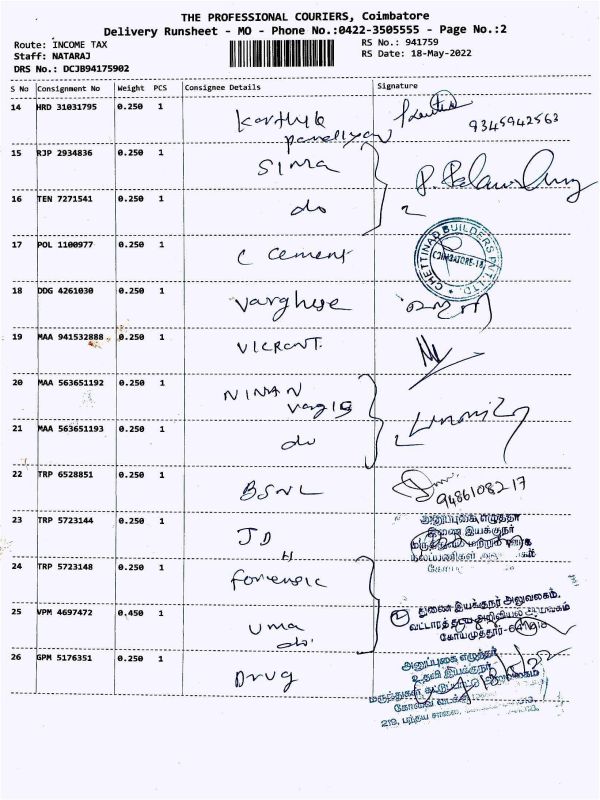 THE PROFESSIONAL COURIERS, Coimbatore
Delivery Runsheet - MO - Phone No.:0422-3505555 - Page No.:2
Route: INCOME TAX
Staff: NATARAJ
DRS No.: DCJB94175902
RS No.: 941759
RS Date: 18-May-2022
S No Consignment No Weight PCS Consignee Details Signature
14 HRD 31031795 0.250 1 Karthik
pandiyan
9345942563
15 RJP 2934836 0.250 1 SIMA
16 TEN 7271541 0.250 1 do 2
17 POL 1100977 0.250 1 C Cement
CHETTINAD BUILDERS PVT. LTD.
COIMBATORE-18
18 DDG 4261030 0.250 1 Varghese
19 MAA 941532888 0.250 1 VICRANT
20 MAA 563651192 0.250 1 NINAN
vargis
21 MAA 563651193 0.250 1 do
22 TRP 6528851 0.250 1 BSNL
9486108217
23 TRP 5723144 0.250 1 JD
H
அனுப்புகை எழுத்தர்
இணை இயக்குநர்
மருத்துவம் மற்றும் ஊரக
நலப்பணிகள்
24 TRP 5723148 0.250 1 Forensic
25 VPM 4697472 0.450 1 Uma
do
2 துணை இயக்குநர் அலுவலகம்,
வட்டாரத் தடய அறிவியல் ஆய்வகம்
கோயமுத்தூர்-641018
26 GPM 5176351 0.250 1 Drug
அனுப்புகை எழுத்தர்
உதவி இயக்குநர்
மருந்துகள் கட்டுப்பாட்டு அலுவலகம்
219, பந்தய சாலை,